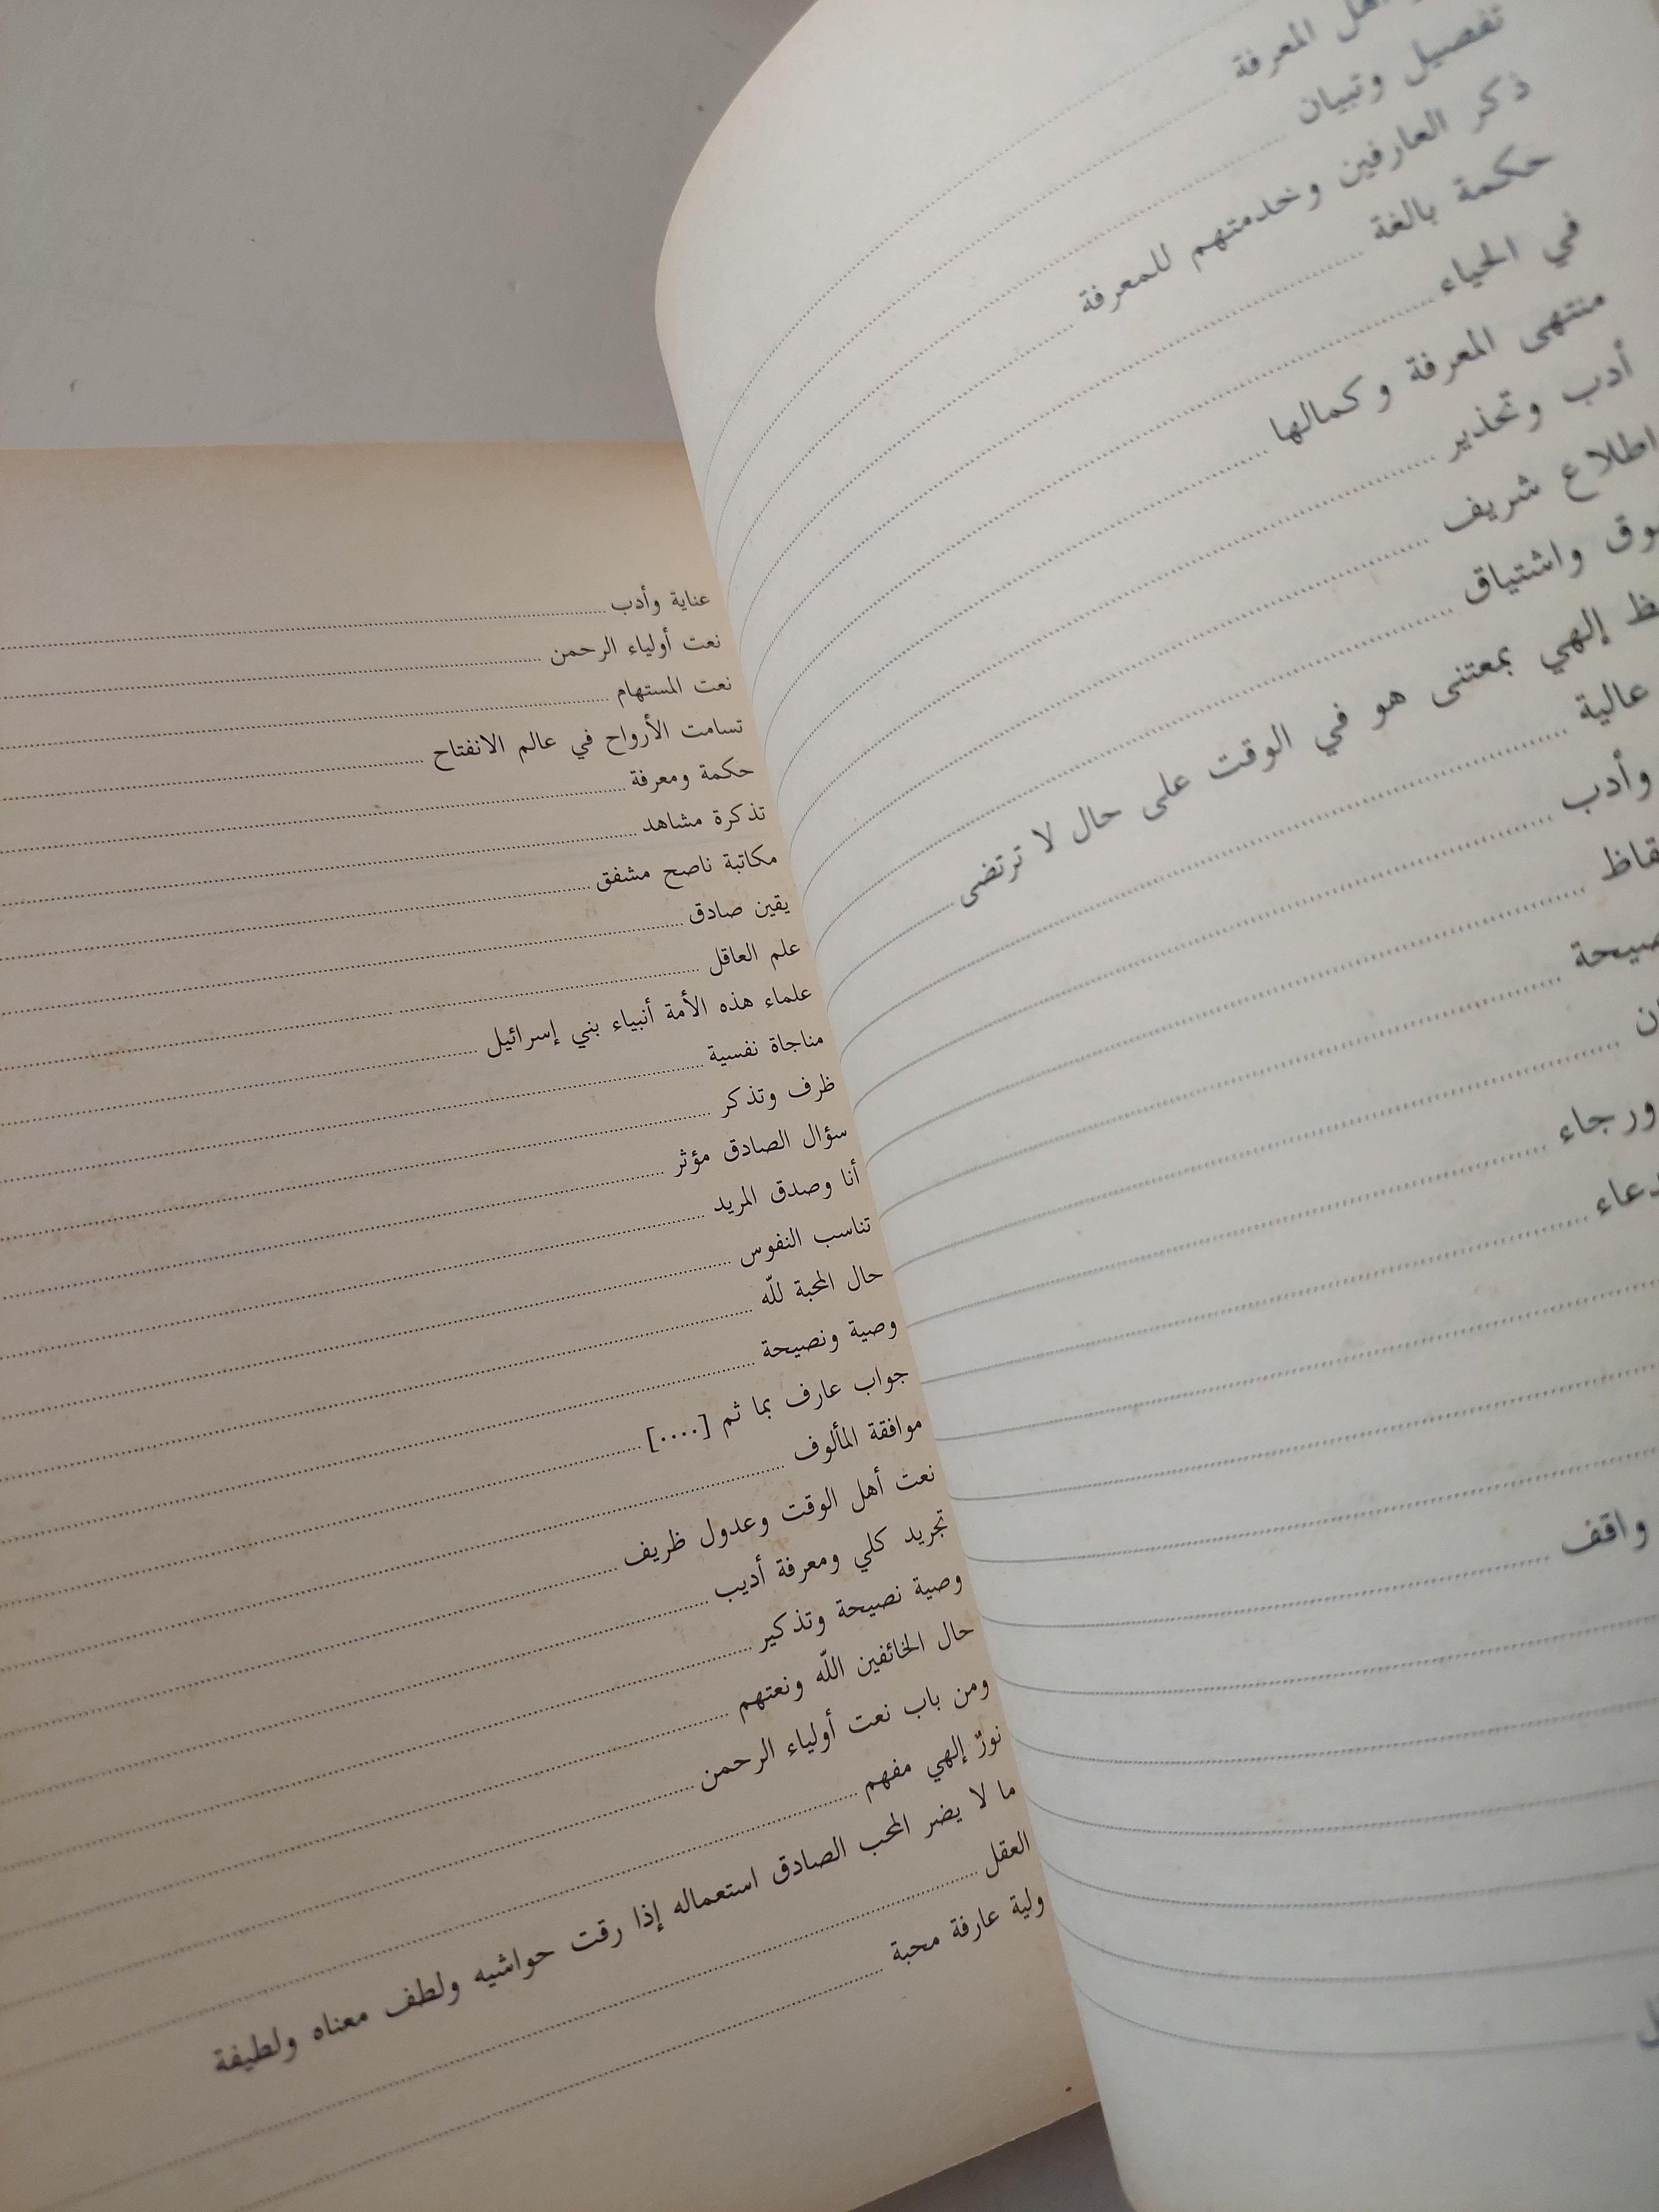 أهل المعرفة
تفصيل وتبيان
ذكر العارفين وخدمتهم للمعرفة
حكمة بالغة
في الحياء
منتهى المعرفة وكمالها
أدب وتحذير
اطلاع شريف
واشتياق
إلهي بمعتنى هو في الوقت على حال لا ترتضى
عالية
وأدب
ورجاء
واقف
عناية وأدب
نعت أولياء الرحمن
نعت المستهام
تسامت الأرواح في عالم الانفتاح
حكمة ومعرفة
تذكرة مشاهد
مكاتبة ناصح مشفق
يقين صادق
علم العاقل
علماء هذه الأمة أنبياء بني إسرائيل
مناجاة نفسية
ظرف وتذكر
سؤال الصادق مؤثر
أنا وصدق المريد
تناسب النفوس
حال المحبة لله
وصية ونصيحة
جواب عارف بما ثم [....]
موافقة المألوف
نعت أهل الوقت وعدول ظريف
تجريد كلي ومعرفة أديب
وصية نصيحة وتذكير
حال الخائفين الله ونعتهم
ومن باب نعت أولياء الرحمن
نورٌ إلهي مفهم
ما لا يضر المحب الصادق استعماله إذا رقت حواشيه ولطف معناه ولطيفة
العقل
ولية عارفة محبة